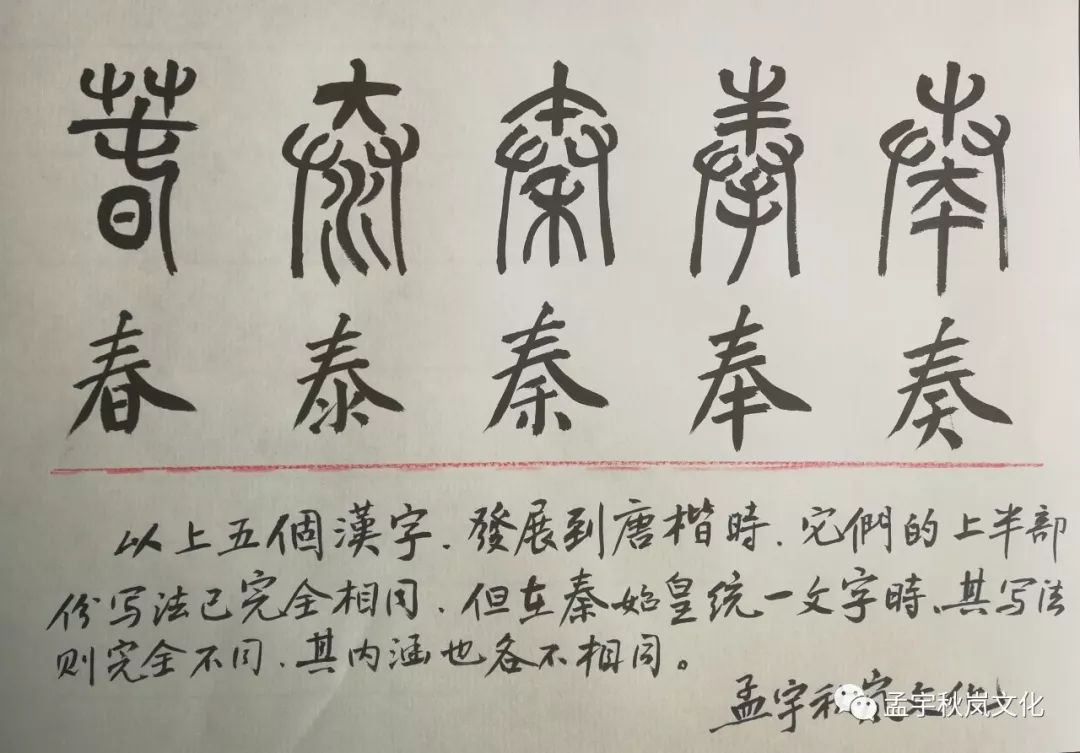 春 泰 秦 奉 奏
春 泰 秦 奉 奏
以上五個漢字、發展到唐楷時、它們的上半部
份写法已完全相同、但在秦始皇统一文字時、其写法
则完全不同、其内涵也各不相同。
孟宇秋岚文化
孟宇秋岚文化